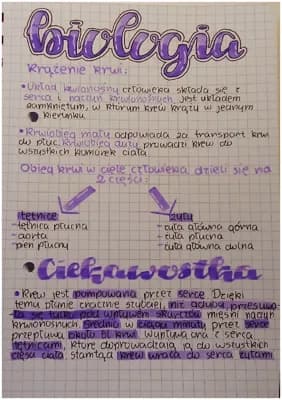 biologia
Krążenie krwi:
• Układ krwionośny człowieka składa się z
serca i naczyń krwionośnych, jest układem
zamkniętym, w którym krew krąży w jednym
kierunku
• Krwiobieg mały odpowiada za transport krwi
do płuc. Krwiobieg duży prowadzi krew do
wszystkich komórek ciała
Obieg krwi w ciele człowieka dzieli się na
2 części:
tętnice
-tętnica płucna
-aorta
-pień płucny
żyły
-żyła główna górna
-żyła płucna
-żyła główna dolna
Ciekawostka
• Krew jest pompowana przez serce. Dzięki
temu płynie znacznie szybciej, niż gdyby przesuwa-
ła się tylko pod wpływem skurczów mięśni naczyń
krwionośnych. Średnio w ciągu minuty przez serce
przepływa około 5l krwi, wypływa ona z serca
tętnicami, które doprowadzają ją do wszystkich
części ciała, stamtąd krew wraca do serca żyłami.